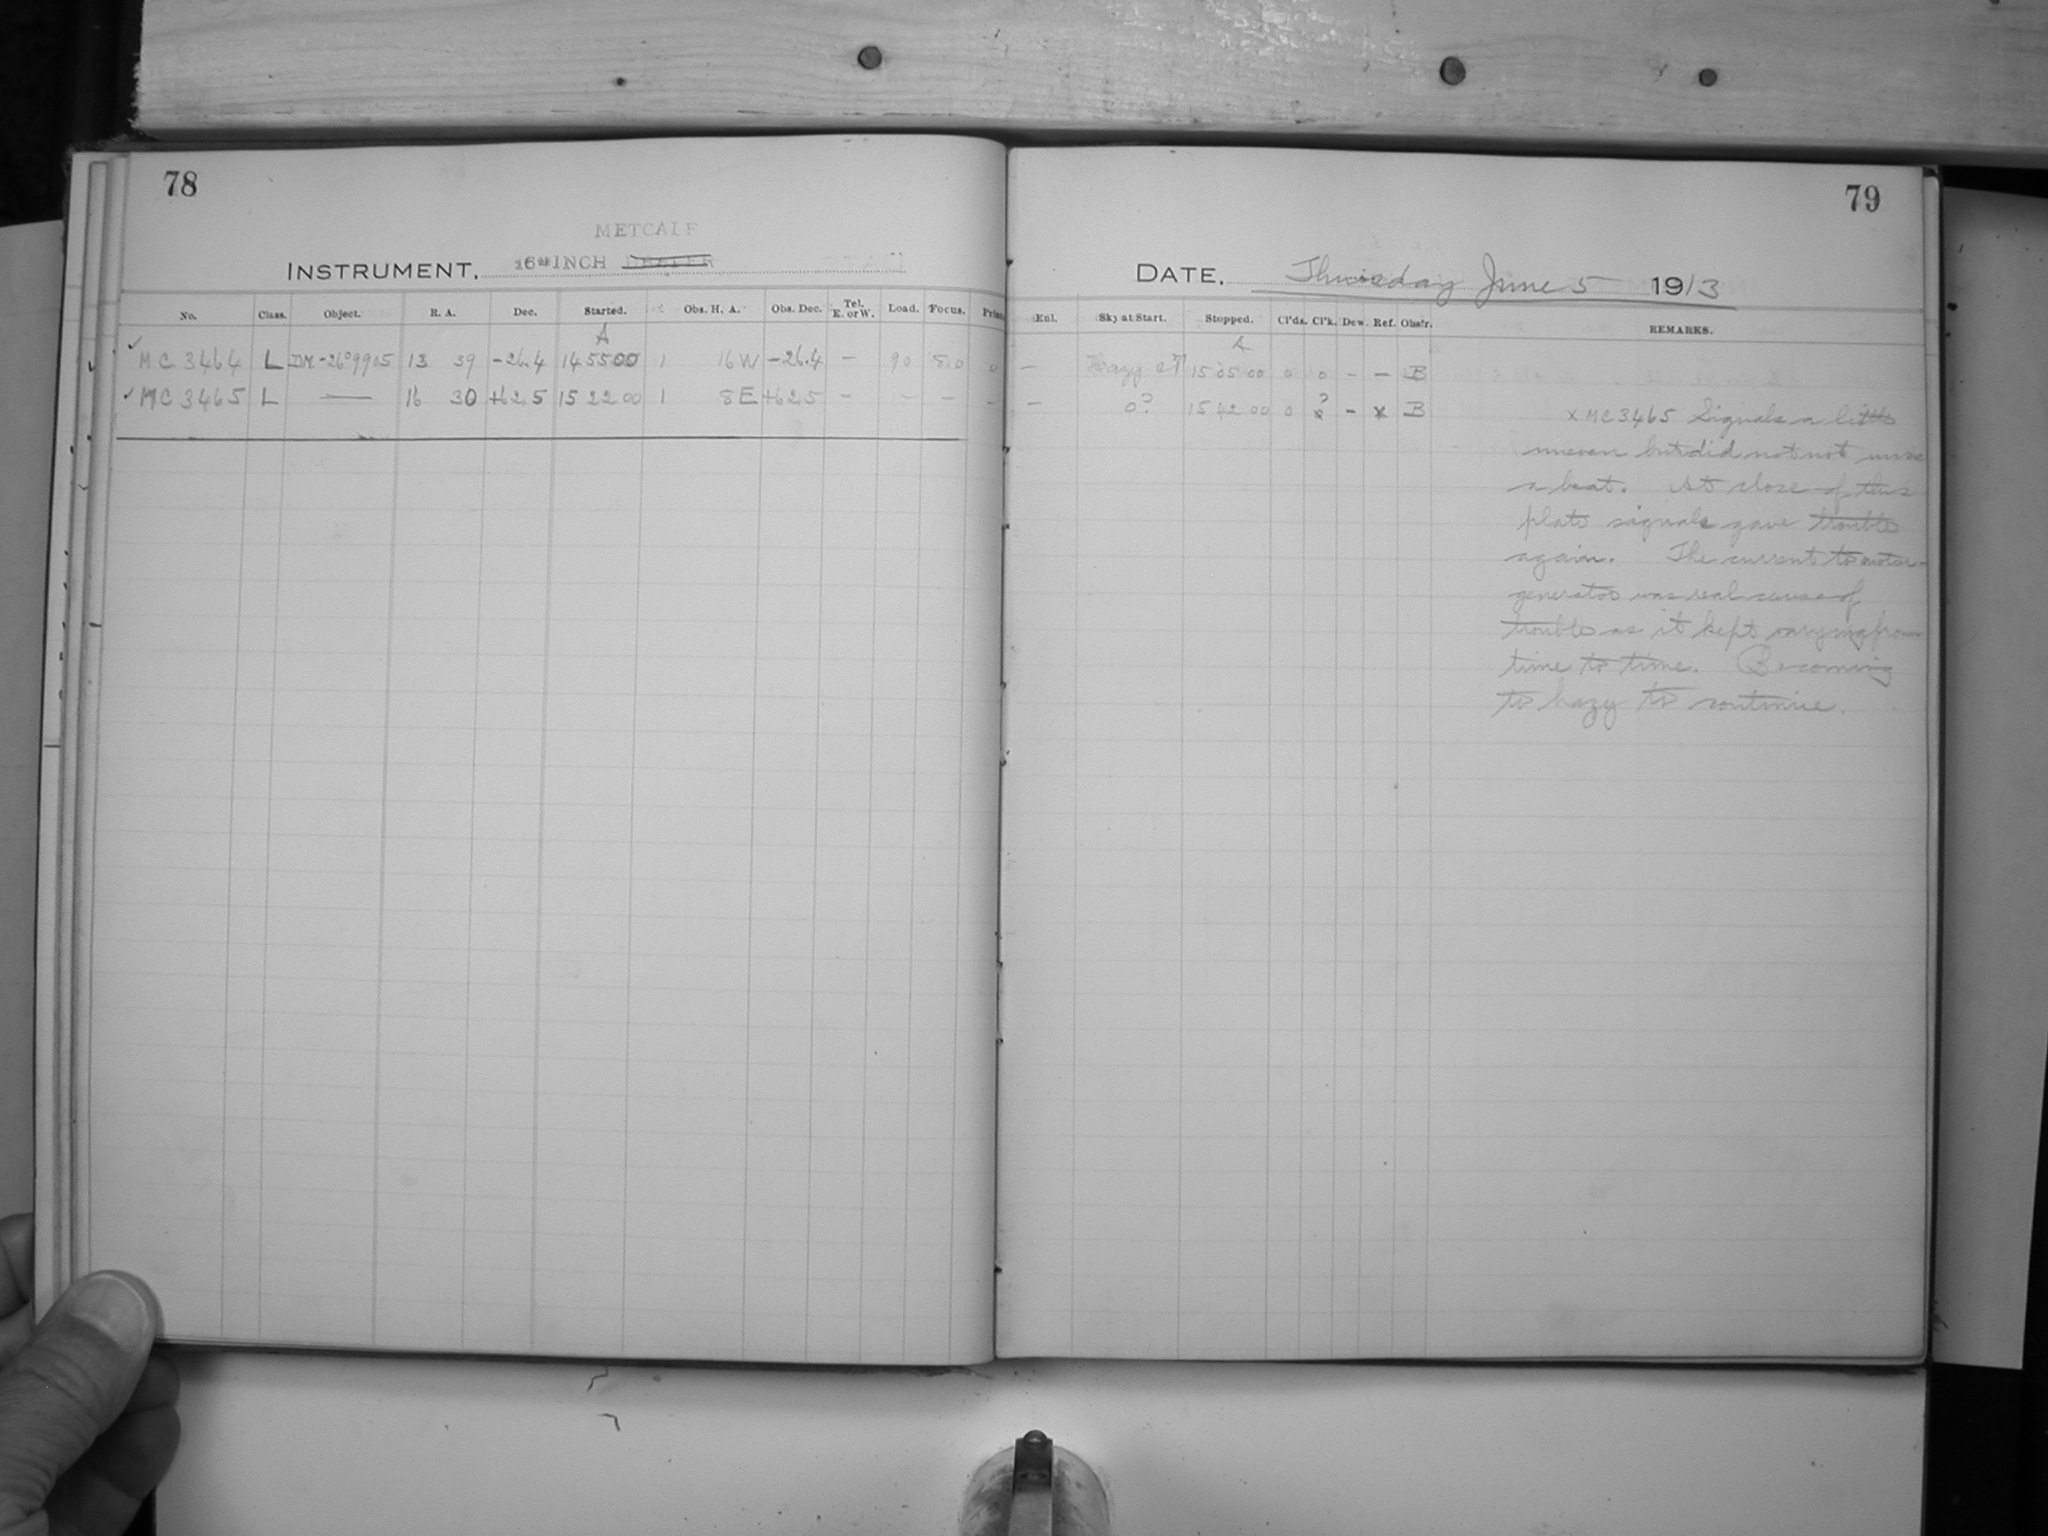 78
METCALF
INSTRUMENT, 16 INCH DRAPER
No. Class. Object. R. A. Dec. Started. Obs. H. A. Obs. Dec. Tel. E. or W. Load. Focus. Prism
A
✓ MC 3464 L DM.-26°9905 13 39 -26.4 14 55 00 1 16 W -26.4 — 90 8.0 0
✓ MC 3465 L — 16 30 +62.5 15 22 00 1 8 E +62.5 - - - -
79
DATE, Thursday June 5 1913
Enl. Sky at Start. Stopped. Cl'ds. Cl'k. Dew. Ref. Obs'r. REMARKS.
A
— Hazy 15 05 00 0 0 - - B
— 0? 15 42 00 0 ? x - x B
x MC 3465 Signals a little
uneven but did not not miss
a beat. At close of this
plate signals gave trouble
again. The current to motor-
generator was real cause of
trouble as it kept varying from
time to time. Becoming
to hazy to continue.